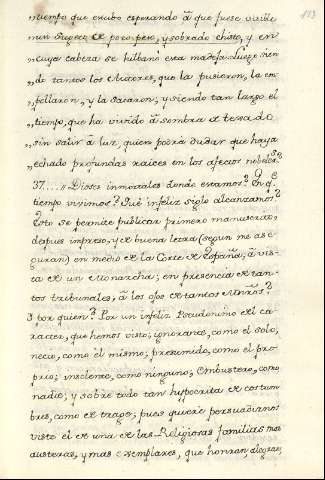 113
tiempo que estubo esperando á que fuese visible
„ un sugeto de poco peso, y sobrado chisto, y en
„ cuya cabeza se hilbanó esta madeja. Luego sien
„ do tantos los Autores, que la pusieron, la em
„ pollaron, y la sacaron, y siendo tan largo el
„ tiempo, que ha vivido á sombra de texado
„ sin salir á luz, quien podrá dudar que haya
„ echado profundas raices en los afectos nobles?
37....„ Dioses inmortales donde estamos? En q.e
tiempo vivimos? Qué infeliz siglo alcanzamos?
Esto se permite publicar primero manuscrito,
despues impreso, y de buena letra (segun me ase
guran) en medio de la Corte de España, á vis
ta de un Monarcha; en presencia de tan
tos tribunales, á los ojos de tantos Mrôs?
Y por quien? Por un infeliz Pseudonimo de el ca
racter, que hemos visto; ignorante, como él solo,
necio, como él mismo; presumido, como el pro
prio; insolente, como ninguno; embustero, como
nadie; y sobre todo tan hypocrita de costum
bres, como de trage; pues quiere persuadirnos
visto él de una de las Religiosas familias mas
austeras, y mas exemplares, que honran, alegran,